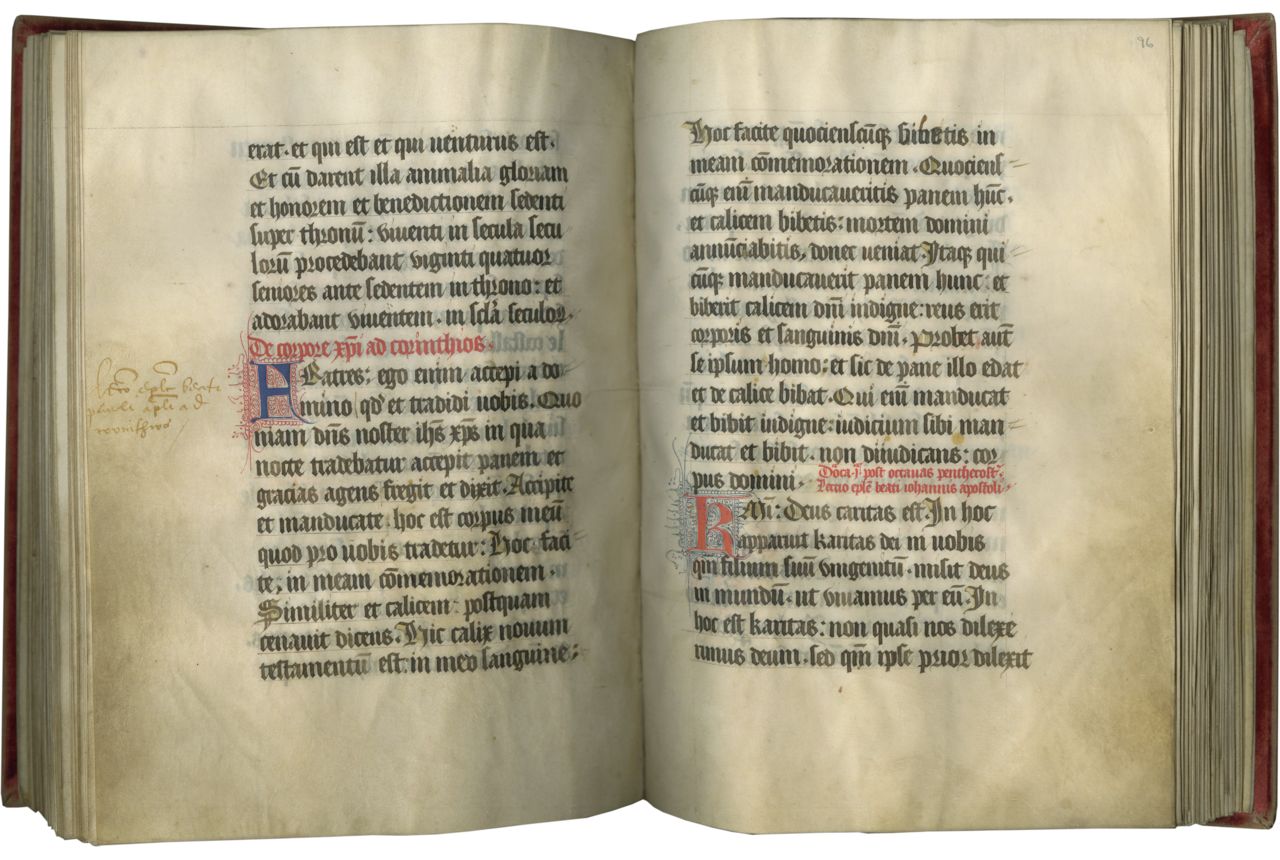 erat. et qui est et qui uenturus est.
Et cū darent illa animalia gloriam
et honorem et benedictionem sedenti
super thronū: viuenti in secula secu
lorū procedebant viginti quatuor
seniores ante sedentem in throno: et
adorabant viuentem. in scl̄a seculoꝝ.
De corpore xp̄i ad corinthios.
FRatres: ego enim accepi a do
mino qd̓ et tradidi uobis. Quo
niam dn̄s noster ih̄s xp̄s in qua
nocte tradebatur accepit panem et
gracias agens fregit et dixit. Accipite
et manducate. hoc est corpus meū
quod pro uobis tradetur: Hoc faci
te; in meam cōmemorationem.
Similiter et calicem: postquam
cenauit dicens. Hic calix nouum
testamentū est: in meo sanguine:
pauli apl̄i ad
96
Hoc facite quocienscūqꝫ bibetis in
meam cōmemorationem. Quociens
cūqꝫ eni᷑ manducaueritis panem hūc.
et calicem bibetis: mortem domini
annūciabitis, donec ueniat. Itaqꝫ qui
cūqꝫ manducauerit panem hunc: et
biberit calicem dn̄i indigne: reus erit
corporis et sanguinis dn̄i. Probet aut̄
se ipsum homo: et sic de pane illo edat
et de calice bibat. Qui eni᷑ manducat
et bibit indigne: iudicium sibi man
ducat et bibit. non diiudicans: cor
pus domini.
Dōca .i. post octauas penthecost̄.
Lectio ep̄le beati iohannis apostoli.
KMi: Deus caritas est. In hoc
apparuit karitas dei in uobis
qm̄ filium suū vnigenitū. misit deus
in mundū. ut viuamus per eū. In
hoc est karitas: non quasi nos dilexe
rimus deum. sed qm̄ ipse prior dilexit